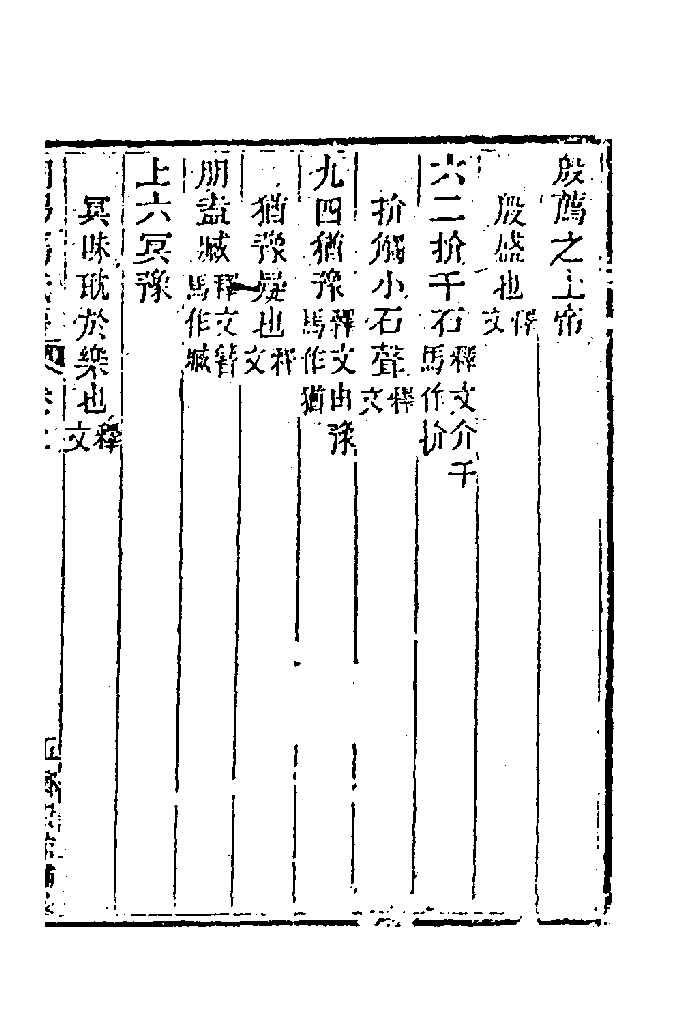 殷薦之上帝
殷盛也釋文
六二扴于石釋文介于馬作扴
扴觸小石聲釋文
九四猶豫釋文由豫馬作猶
猶豫疑也釋文
朋盍臧釋文簪馬作臧
上六冥豫
冥昧耽於樂也釋文